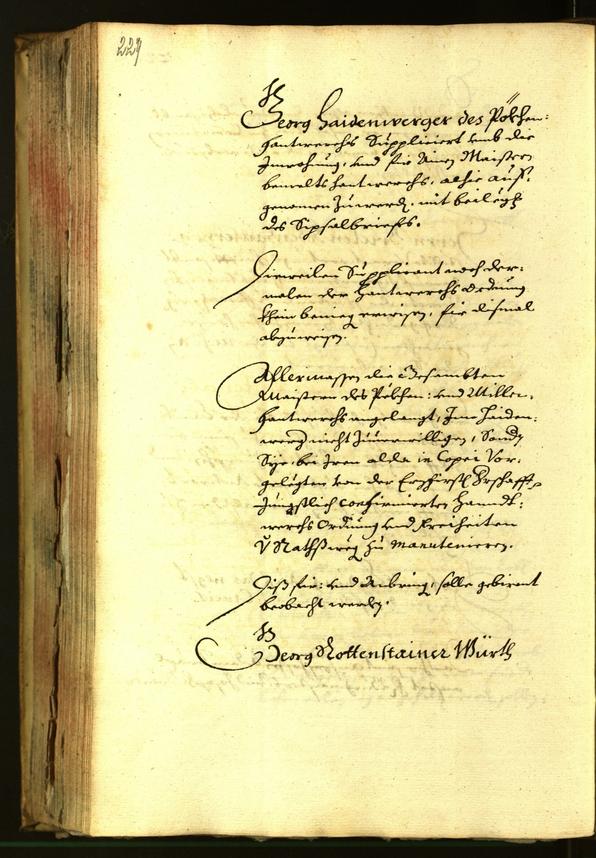 227
Georg Haidenwerger des Pökhen:
hantwerchs Suppliciert umb die
Inwohung, und für Ainen Maistern
bemelts hantwerchs, alhie auf:
genomen zu werdn, mit beilegung
des Gepurtsbriefs.
Dieweilen Supplicant noch der:
malen der Hantwerchs Ordnung
khein beniegen erwisen, für dismal
abzuweisen.
Allermassen die Gesambten
Maistern des Pökhen: und Miller,
hantwerchs angelangt, Ime Haiden:
werger nicht zuverwilligen, Sonder
Sye, bei Iren alda in Copei Vor:
gelegten von der Erzfirstl:
Jüngstlich confirmierten Handt:
werchs Ordnung und Freiheiten
von Rathswegen zu manutenieren.
Diß für: und Anbringen, solle gebirent
beobacht werden.
Georg Rottenstainer Würth